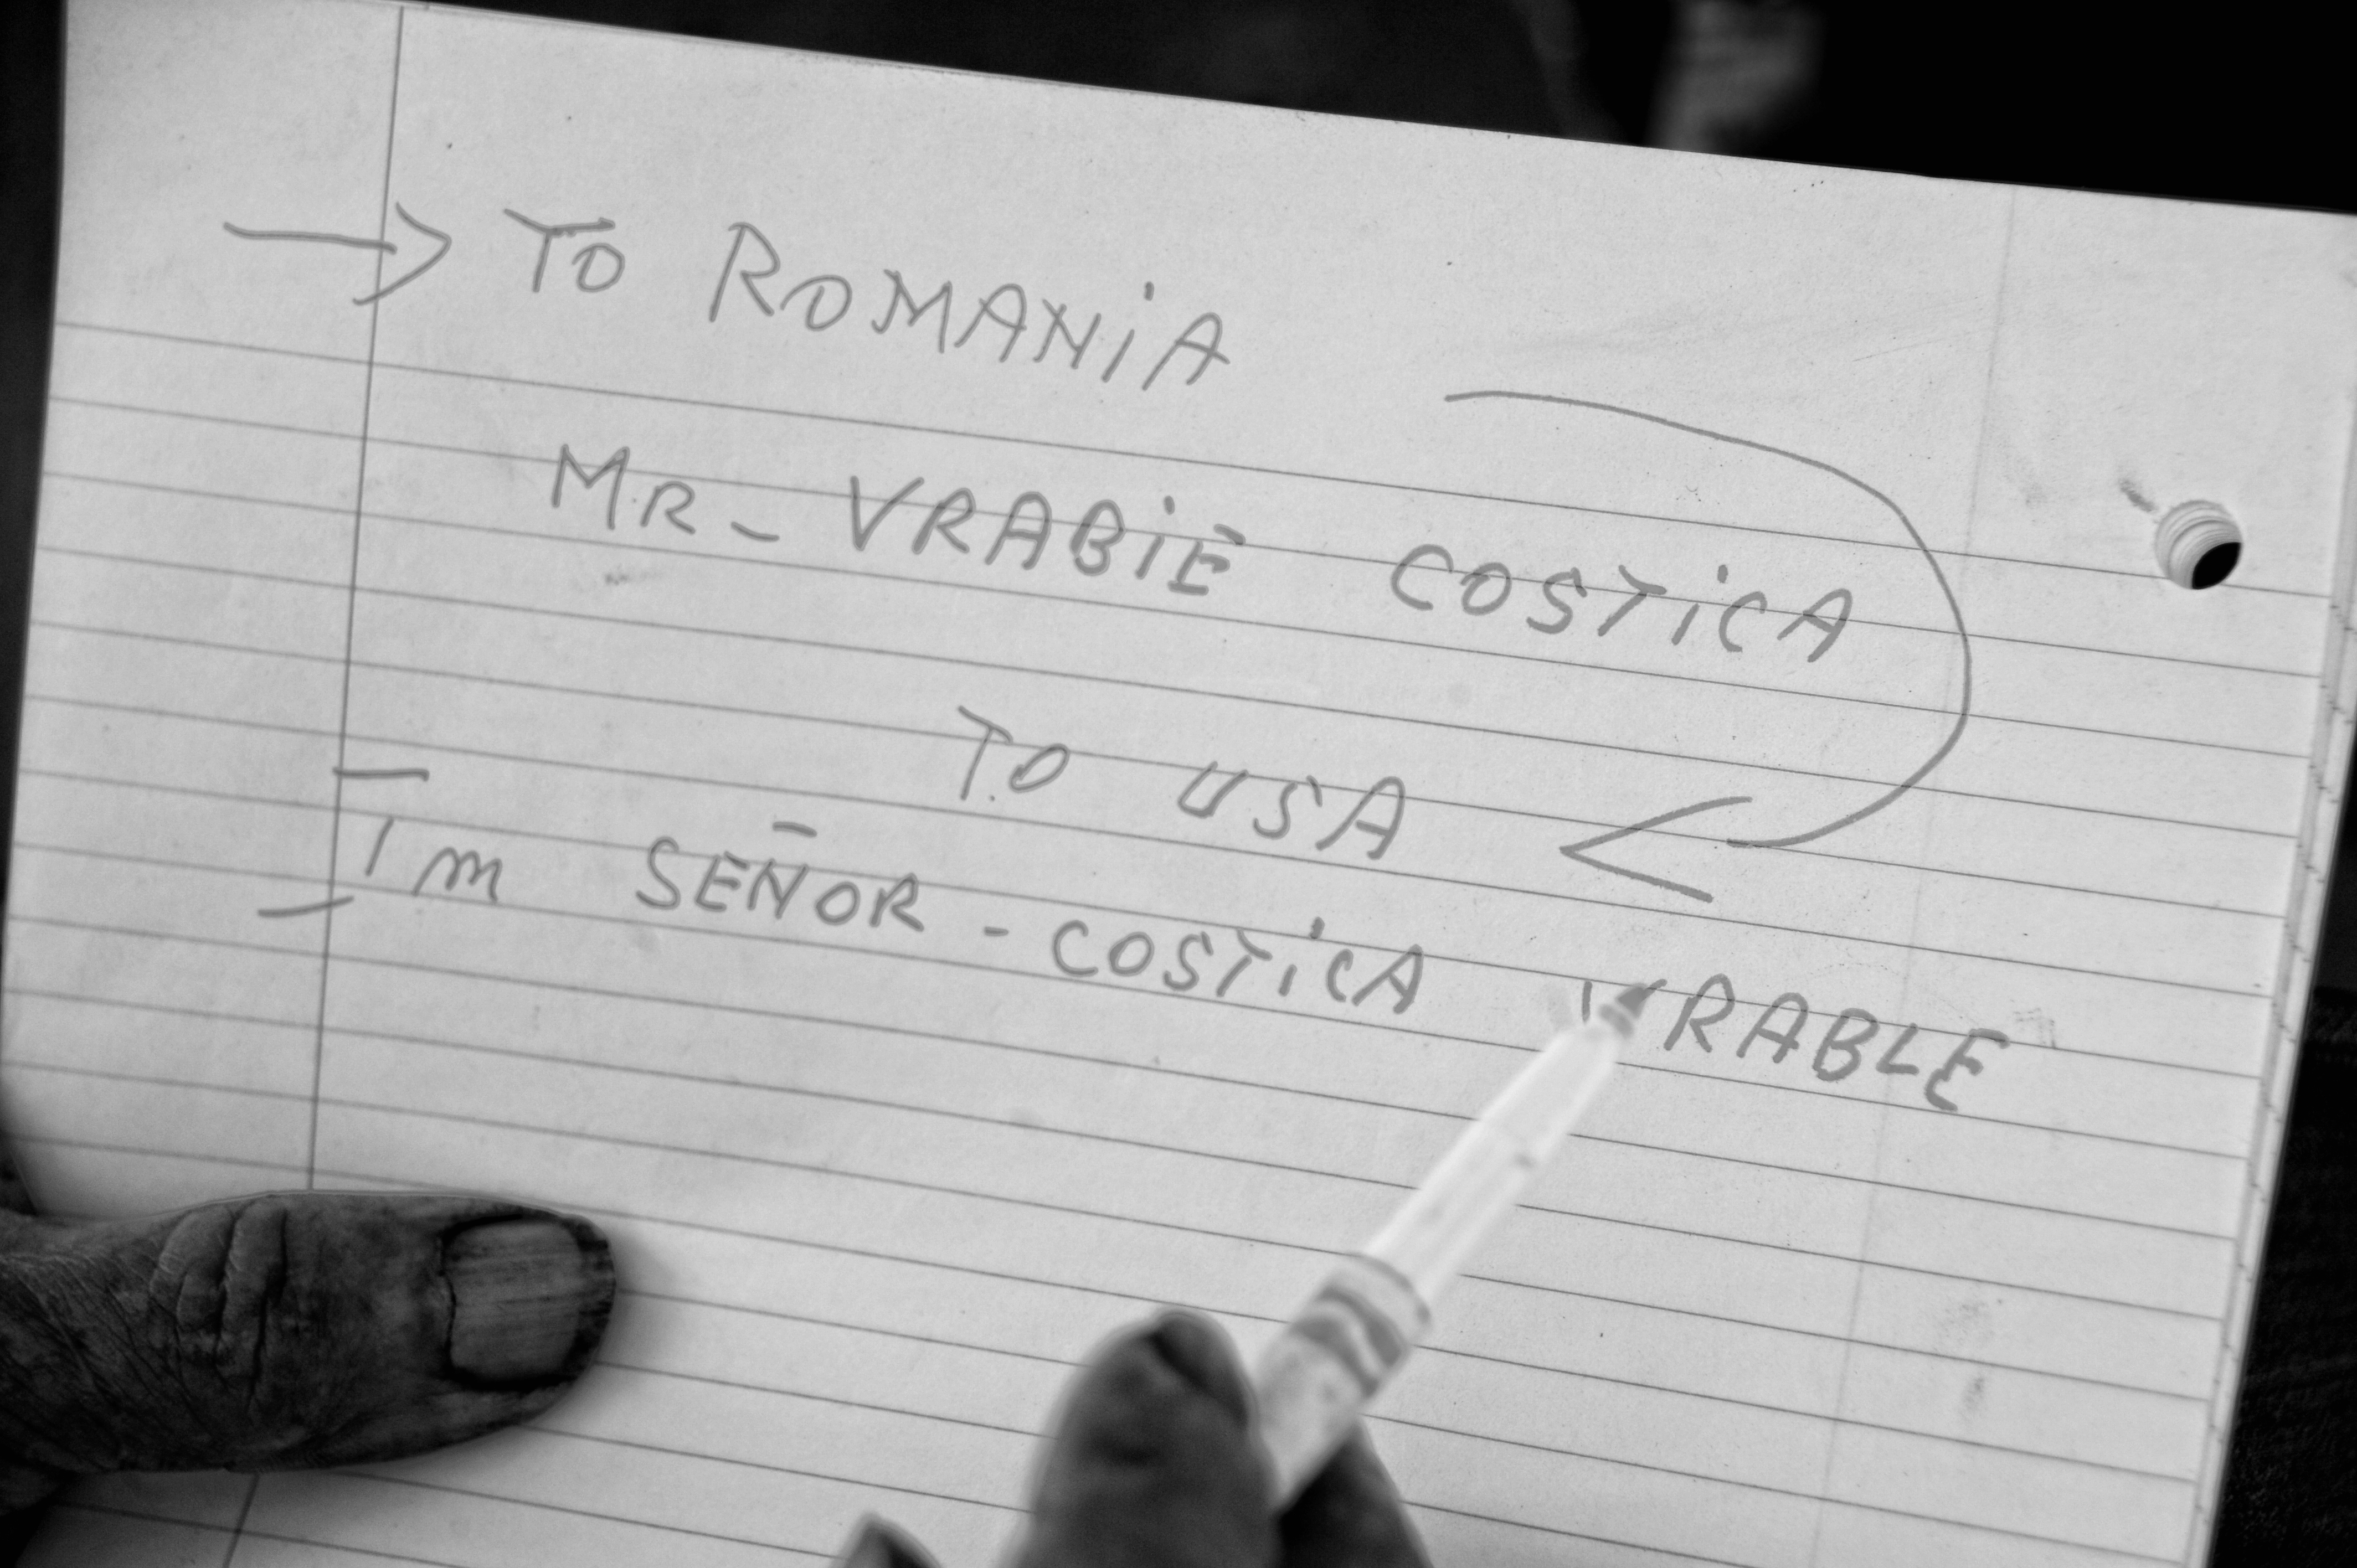 → TO ROMANiA
MR - VRABiE COSTiCA
TO USA
I'm SEÑOR - COSTiCA VRABLE